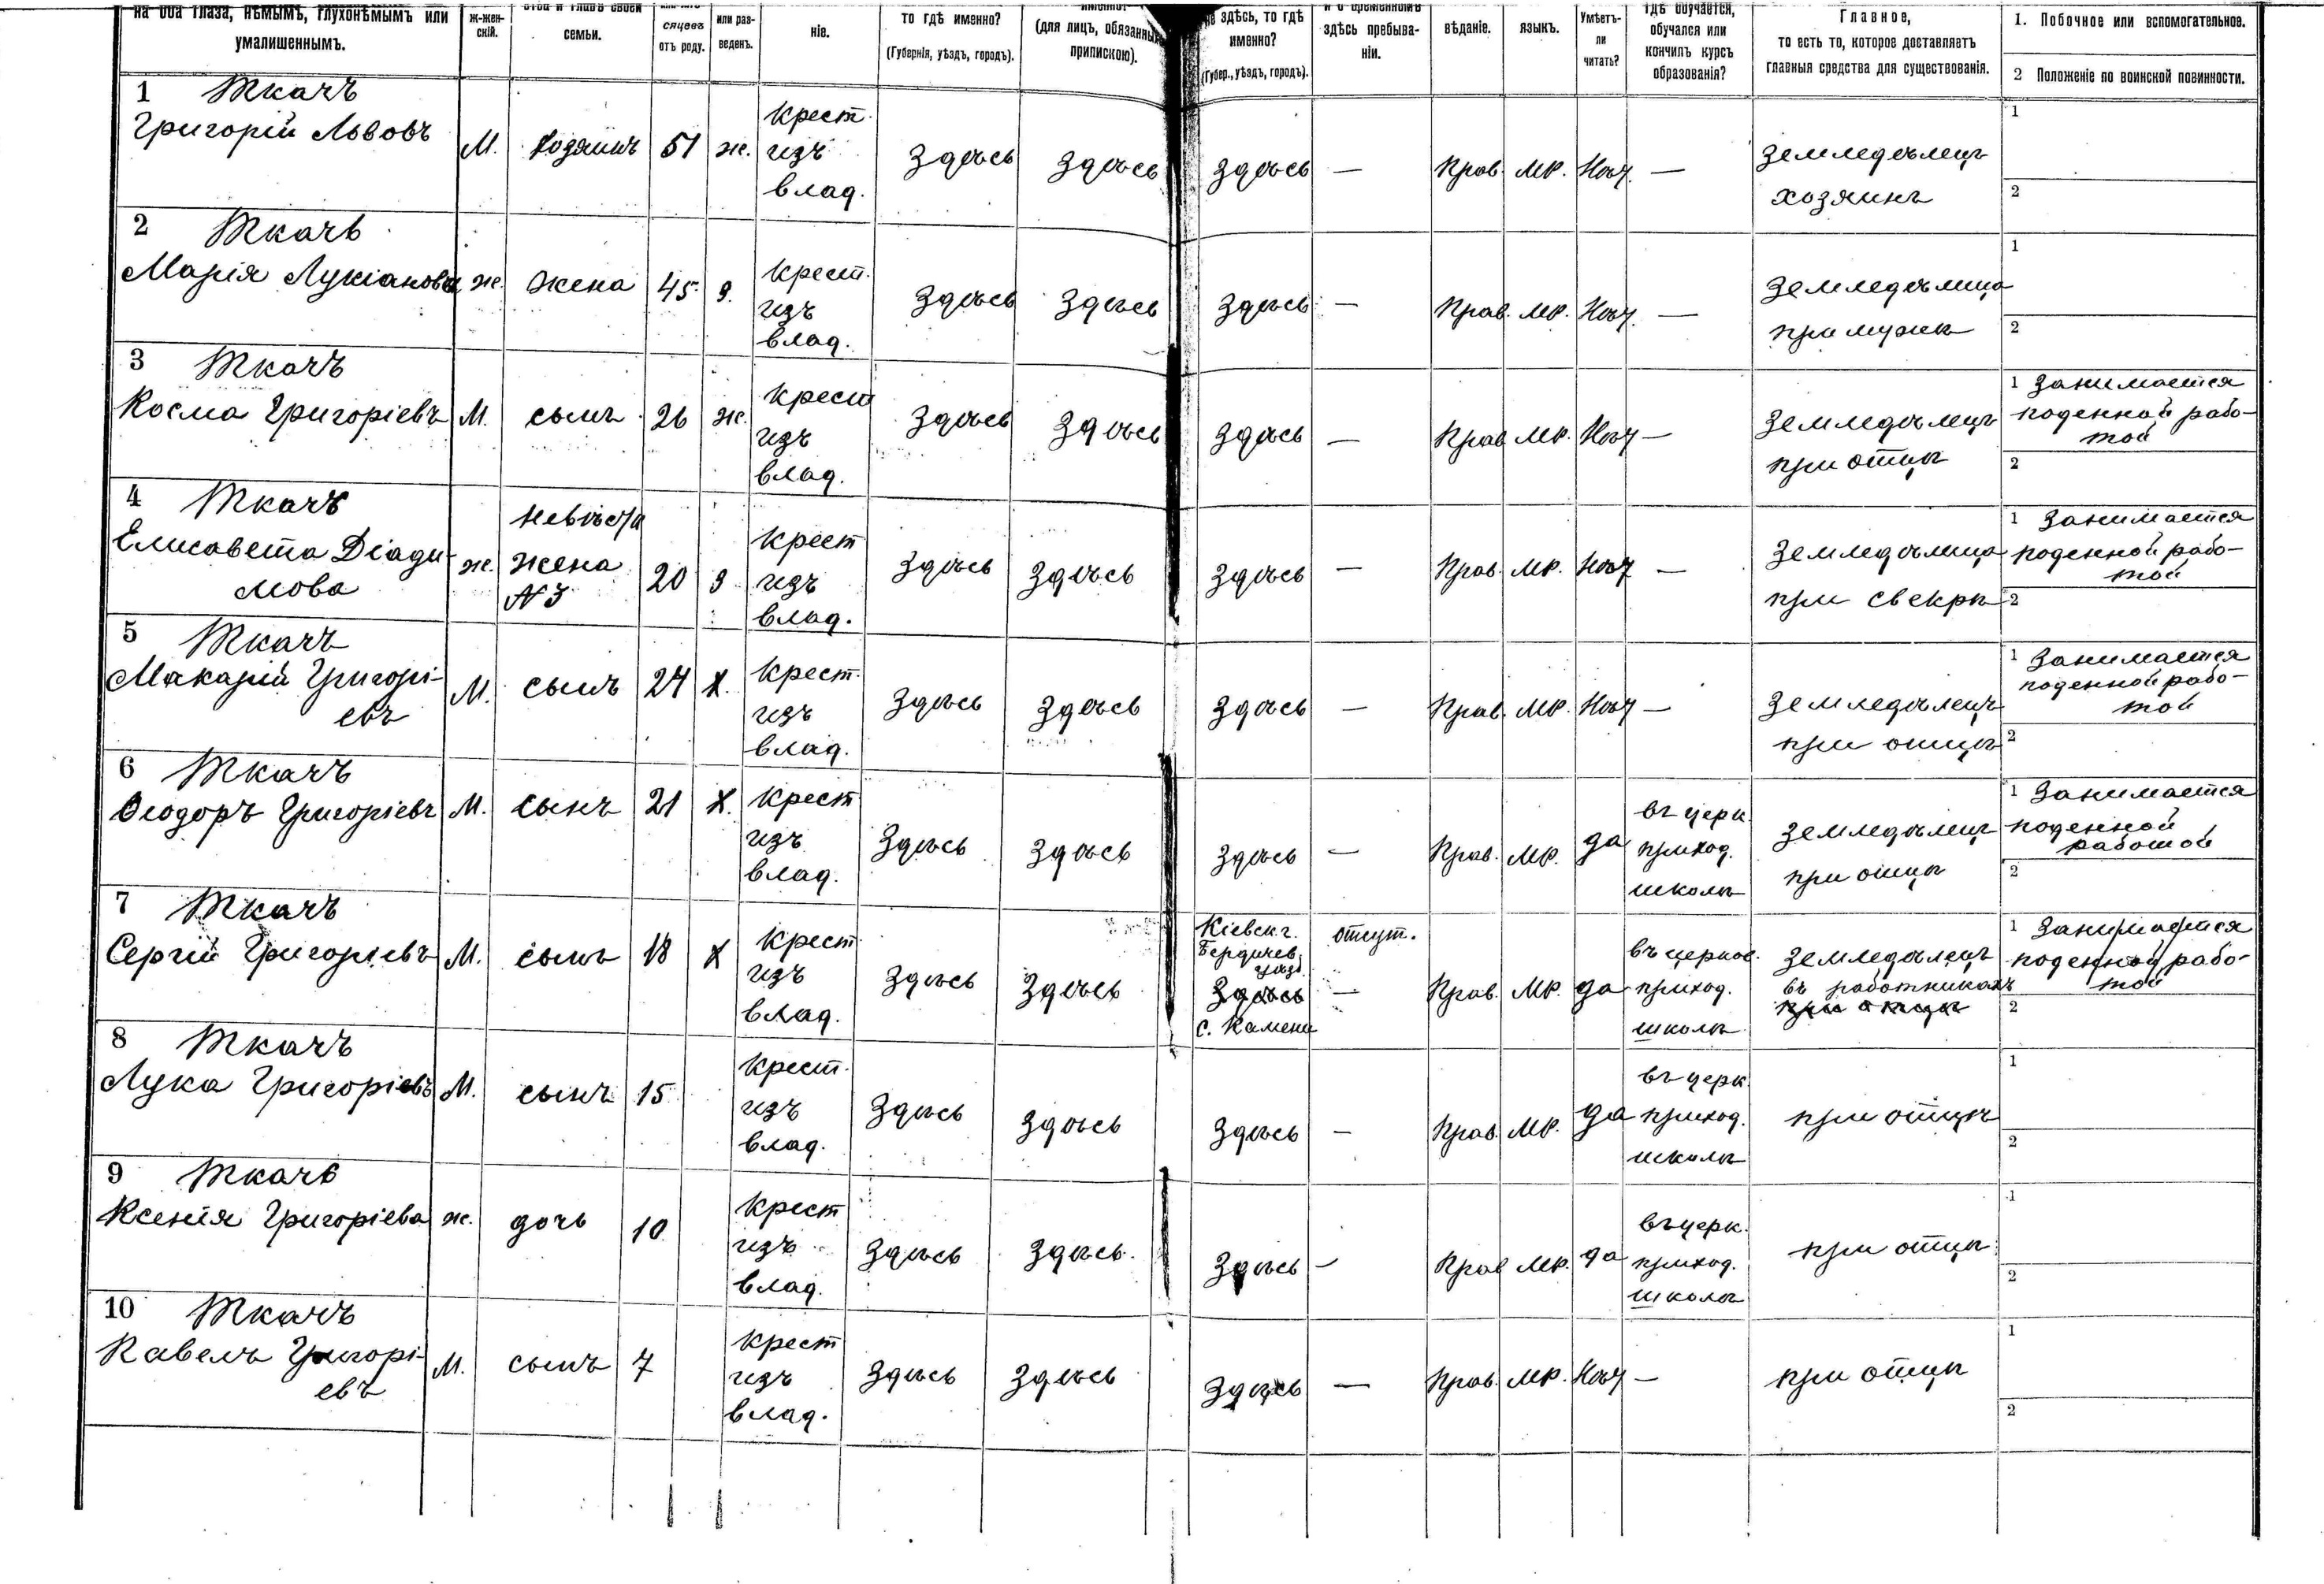 на оба глаза, нѣмымъ, глухонѣмымъ или умалишеннымъ.
ж-женскій.
семьи.
отъ роду.
или разведенъ.
ніе.
то гдѣ именно?
(Губернія, уѣздъ, городъ).
(для лицъ, обязанныхъ припискою).
здѣсь, то гдѣ именно?
(Губер., уѣздъ, городъ).
здѣсь пребываніи.
вѣданіе.
языкъ.
Умѣетъ-ли читать?
гдѣ обучается, обучался или кончилъ курсъ образованія?
Главное,
то есть то, которое доставляетъ главныя средства для существованія.
1. Побочное или вспомогательное.
2 Положеніе по воинской повинности.
1 Ткачъ
Григорій Львовъ
М. хозяинъ 51 ж. крест. изъ влад. здѣсь здѣсь здѣсь — Прав. мр. Нѣт. — Земледѣлецъ хозяинъ 1 2
2 Ткачъ
Марія Лукіанова
ж. жена 45 з. крест. изъ влад. здѣсь здѣсь здѣсь — Прав. мр. Нѣт. — Земледѣлица при мужѣ 1 2
3 Ткачъ
Косма Григоріевъ
М. сынъ 26 ж. крест изъ влад. здѣсь здѣсь здѣсь — Прав мр. Нѣт — Земледѣлецъ при отцѣ 1 Занимается поденной работой 2
4 Ткачъ
Елисавета Діадимова
ж. невѣста жена N 3 20 з крест изъ влад. здѣсь здѣсь здѣсь — Прав. мр. Нѣт — Земледѣлица при свекрѣ 1 Занимается поденной работой 2
5 Ткачъ
Макарій Григоріевъ
М. сынъ 24 х. крест. изъ влад. здѣсь здѣсь здѣсь — Прав. мр. Нѣт — Земледѣлецъ при отцѣ 1 Занимается поденной работой 2
6 Ткачъ
Ѳеодоръ Григоріевъ
М. сынъ 21 х. крест изъ влад. здѣсь здѣсь здѣсь — Прав. мр. да въ церк. приход. школѣ Земледѣлецъ при отцѣ 1 Занимается поденной работой 2
7 Ткачъ
Сергій Григоріевъ
М. сынъ 18 х крест. изъ влад. здѣсь здѣсь Кіевск. г. Бердичев. уѣзд. здѣсь с. Камени отсут. — Прав. мр. да въ церков. приход. школѣ Земледѣлецъ въ работникахъ при отцѣ 1 Занимается поденной работой 2
8 Ткачъ
Лука Григоріевъ
М. сынъ 15 крест. изъ влад. здѣсь здѣсь здѣсь — Прав. мр. да въ церк. приход. школѣ при отцѣ 1 2
9 Ткачъ
Ксенія Григоріева
ж. дочь 10 крест изъ влад. здѣсь здѣсь. здѣсь — Прав мр. да въ церк. приход. школѣ при отцѣ 1 2
10 Ткачъ
Павелъ Григоріевъ
М. сынъ 7 крест изъ влад. здѣсь здѣсь здѣсь — Прав. мр. Нѣт — при отцѣ 1 2